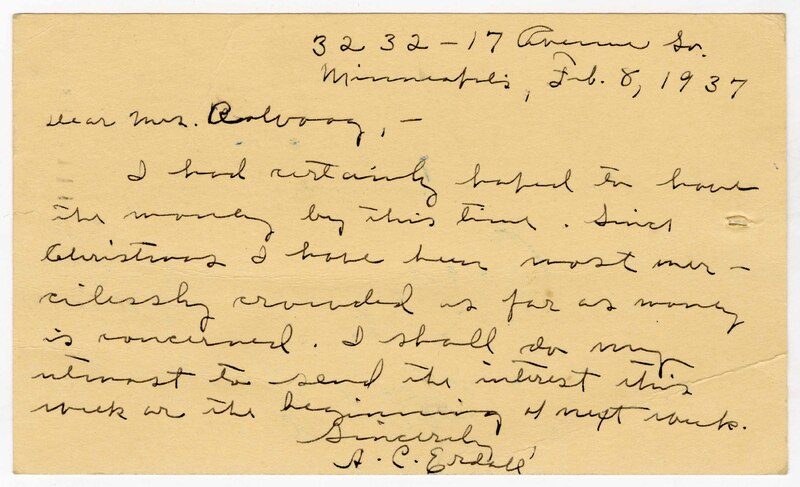 3232 - 17 Avenue So.
Minneapolis, Feb. 8, 1937
Dear Mrs. Rolvaag, -
I had certainly hoped to have
the money by this time. Since
Christmas I have been most mer-
cilessly crowded as far as money
is concerned. I shall do my
utmost to send the interest this
week or the beginning of next week.
Sincerely,
A. C. Erdall